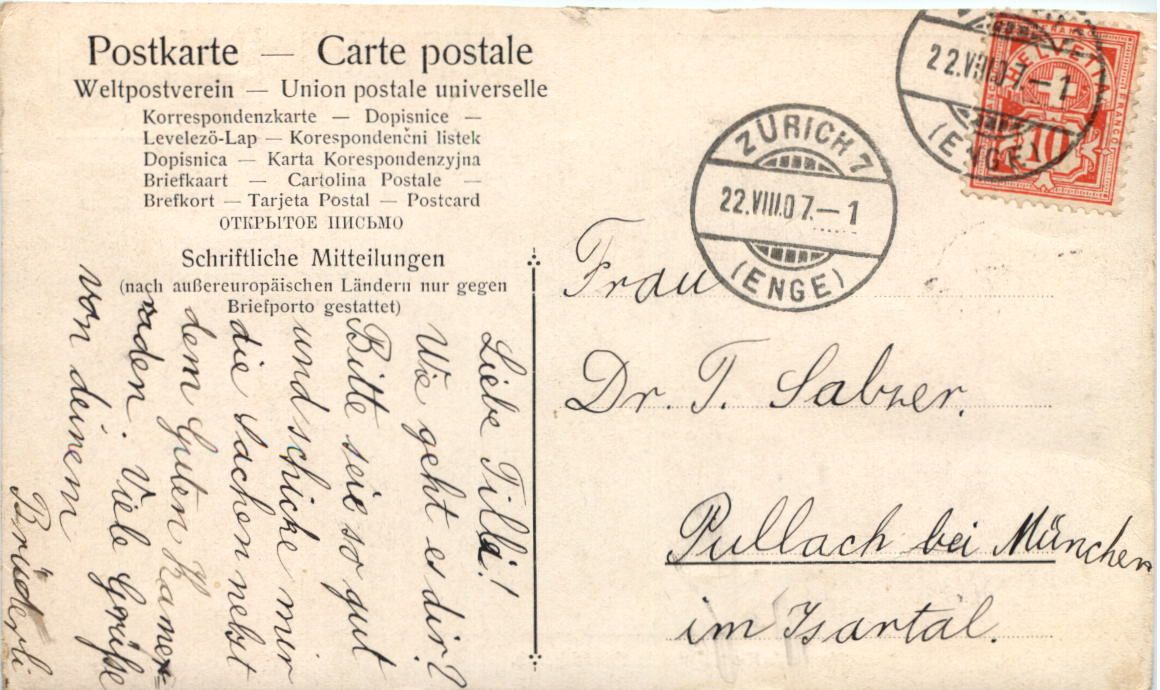 Postkarte — Carte postale
Weltpostverein — Union postale universelle
Korrespondenzkarte — Dopisnice —
Levelező-Lap — Korespondenční listek
Dopisnica — Karta Korespondenzyjna
Briefkaart — Cartolina Postale —
Brefkort — Tarjeta Postal — Postcard
ОТКРЫТОЕ ПИСЬМО
Schriftliche Mitteilungen
(nach außereuropäischen Ländern nur gegen
Briefporto gestattet)
Liebe Tilli!
Wie geht es dir?
Bitte seie so gut
und schicke mir
die Sachen nebst
dem Guten Kame-
raden. Viele Grüße
von deinem
Brüderli
ZÜRICH 7
22.VIII.07.—1
(ENGE)
22.VIII.07—1
(ENGE)
HELVETIA
FRANCO
10
Frau
Dr. T.
Pullach bei München
im Isartal.